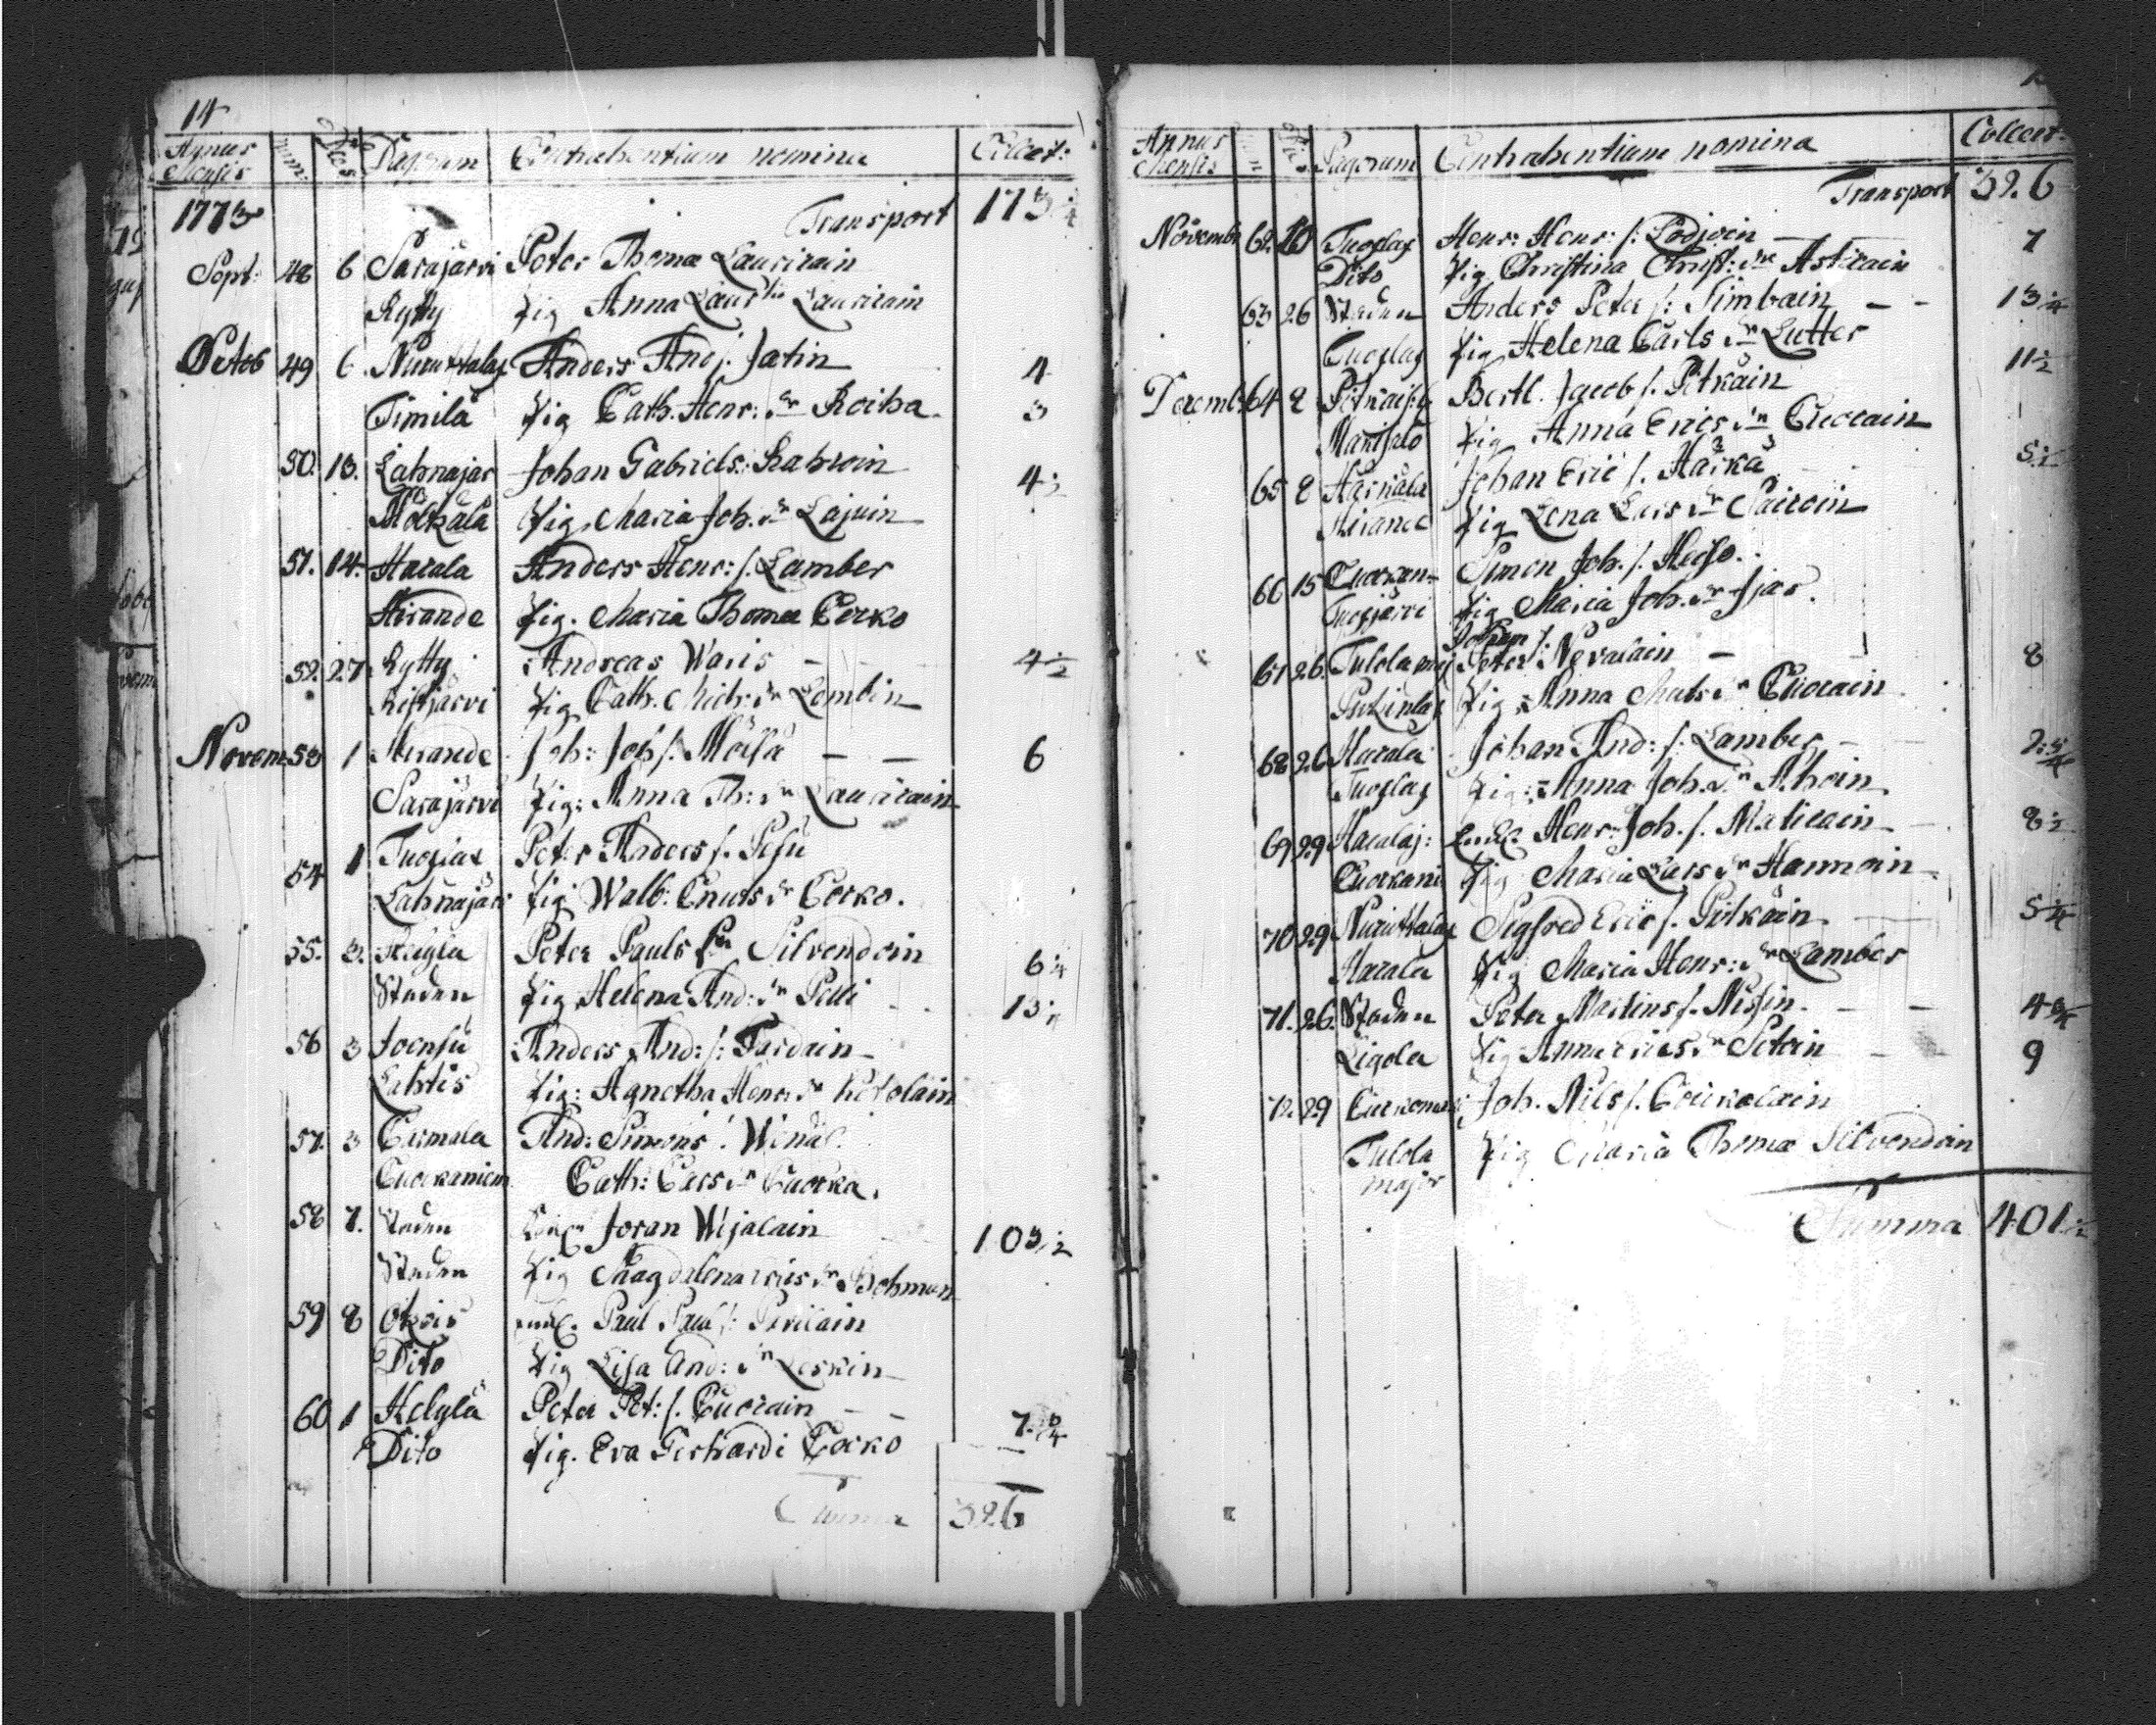 14
Annus Mensis Num: Dies Pagorum Contrahentium nomina Collect:
1773 Transport 173 3/4
Sept: 48 6 Sarajärvi Peter Thomæ Lauricain
Rytty Pig Anna Laur Lauricain
Octob 49 6. Nurutkalax Anders And. Jatin 4
Timila Pig Cath. Henr: dr Roiha 3
50. 13. Lahnajar Johan Gabriels: Rahwoin 4 1/2
Mölkälä Pig. Maria Joh. dr Lajuin
51. 14. Hacala Anders Henr: s. Lamber
Hirande Pig. Maria Thomæ Cocko
52. 27 Rytty Andreas Waris 4 1/2
Ristjärvi Pig Cath. Mich: dr Lembin
Novem 53 1 Hirande Joh: Joh s. Möllä 6
Sarajärvi Pig: Anna Th: dr Lauricain
54 1 Tuoslax Peter Anders s. Pesu
Lahnajärv Pig Walb: Cnuts dr Cocko.
55. 3. Helyla Peter Pauls Silvendoin 6 1/4
Staden Pig Helena And: dr Pelli 13 1/4
56 3 Joensu Anders And: s: Tardain
Lahtis Pig: Agnetha Henr dr Ketolain
57. 3 Carmala And: Simons Winds.
Cuockaniem Cath: dr Cuocka.
58 7. Staden Joran Wijalain 103 1/2
Staden Pig Magdalena dr Bohman
59 8 Otsois Paul Paul s:
Dito Pig Lisa And: dr Leskin
60 1 Helylä Peter Pet: s. Cuocain 7. 3/4
Dito Pig. Eva Gerhardi Cocko
Summa 326
Annus Mensis Dies Pagorum Contrahentium nomina Collect:
Transport 326
Novembr 62. 10 Tuoslax Henr: Henr: s: Sodjoin 7
Dito Pig Christina Christ: dr Asticain
63 26 Staden Anders Peter s: Timbain 13 1/4
Tuoslax Pig Helena Carls dr Lutter
Decemb 64 2 Bertl. Jacob s. Pitkäin 11 1/2
Marisalo Pig Anna Erics dr Cuccain
65 2 Härkälä Johan Eric s. Härkä 5 1/2
Hirande Pig Lena Lars dr Pairoin
66 15 Cuockan Simon Joh. s. Heiso.
Tuosjärvi Pig Maria Joh. dr Ijas.
67 26. Tulola maj Johan s. Peter Nevalain 8
Putzinlax Pig Anna Mats dr Cuocain
68 26 Hacala Johan And: s: Lamber 7. 3/4
Tuoslax Pig: Anna Joh. dr Ahoin
69 29 Hacalaj: Henr: Joh. s. Maticain 8 1/2
Cuockani Pig Maria Lars dr Hannoin
70 29 Nurutkalax Sigfred Eric s. Pitkäin 5 1/4
Hacala Pig Maria Henr: dr Lamber
71. 26. Staden Peter Martins s. Nissin 4 3/4
Ligola Pig Anna Erics dr Potoin 9
72. 29 Cuckoniemi Joh. Nils s. Couckalain
Tulola major Pig Maria Thomæ Silvendoin
Summa 401 1/2